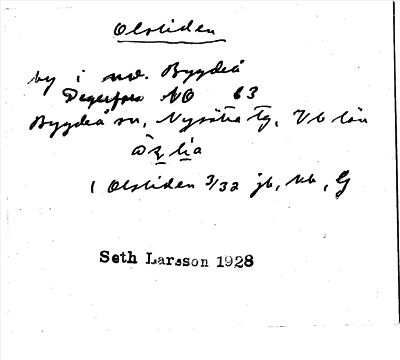 Olsliden
by i nv. Bygdeå
Degerfors NO 63
Bygdeå sn, Nysätra tg, Vb län
1 Olsliden 3/32 jb, kb, G
Seth Larsson 1928